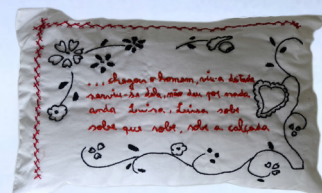 ... chegou o homem, viu-a deitada
serviu-se dela, não deu por nada
anda Luísa, Luísa sobe
sobe que sobe, sobe a calçada